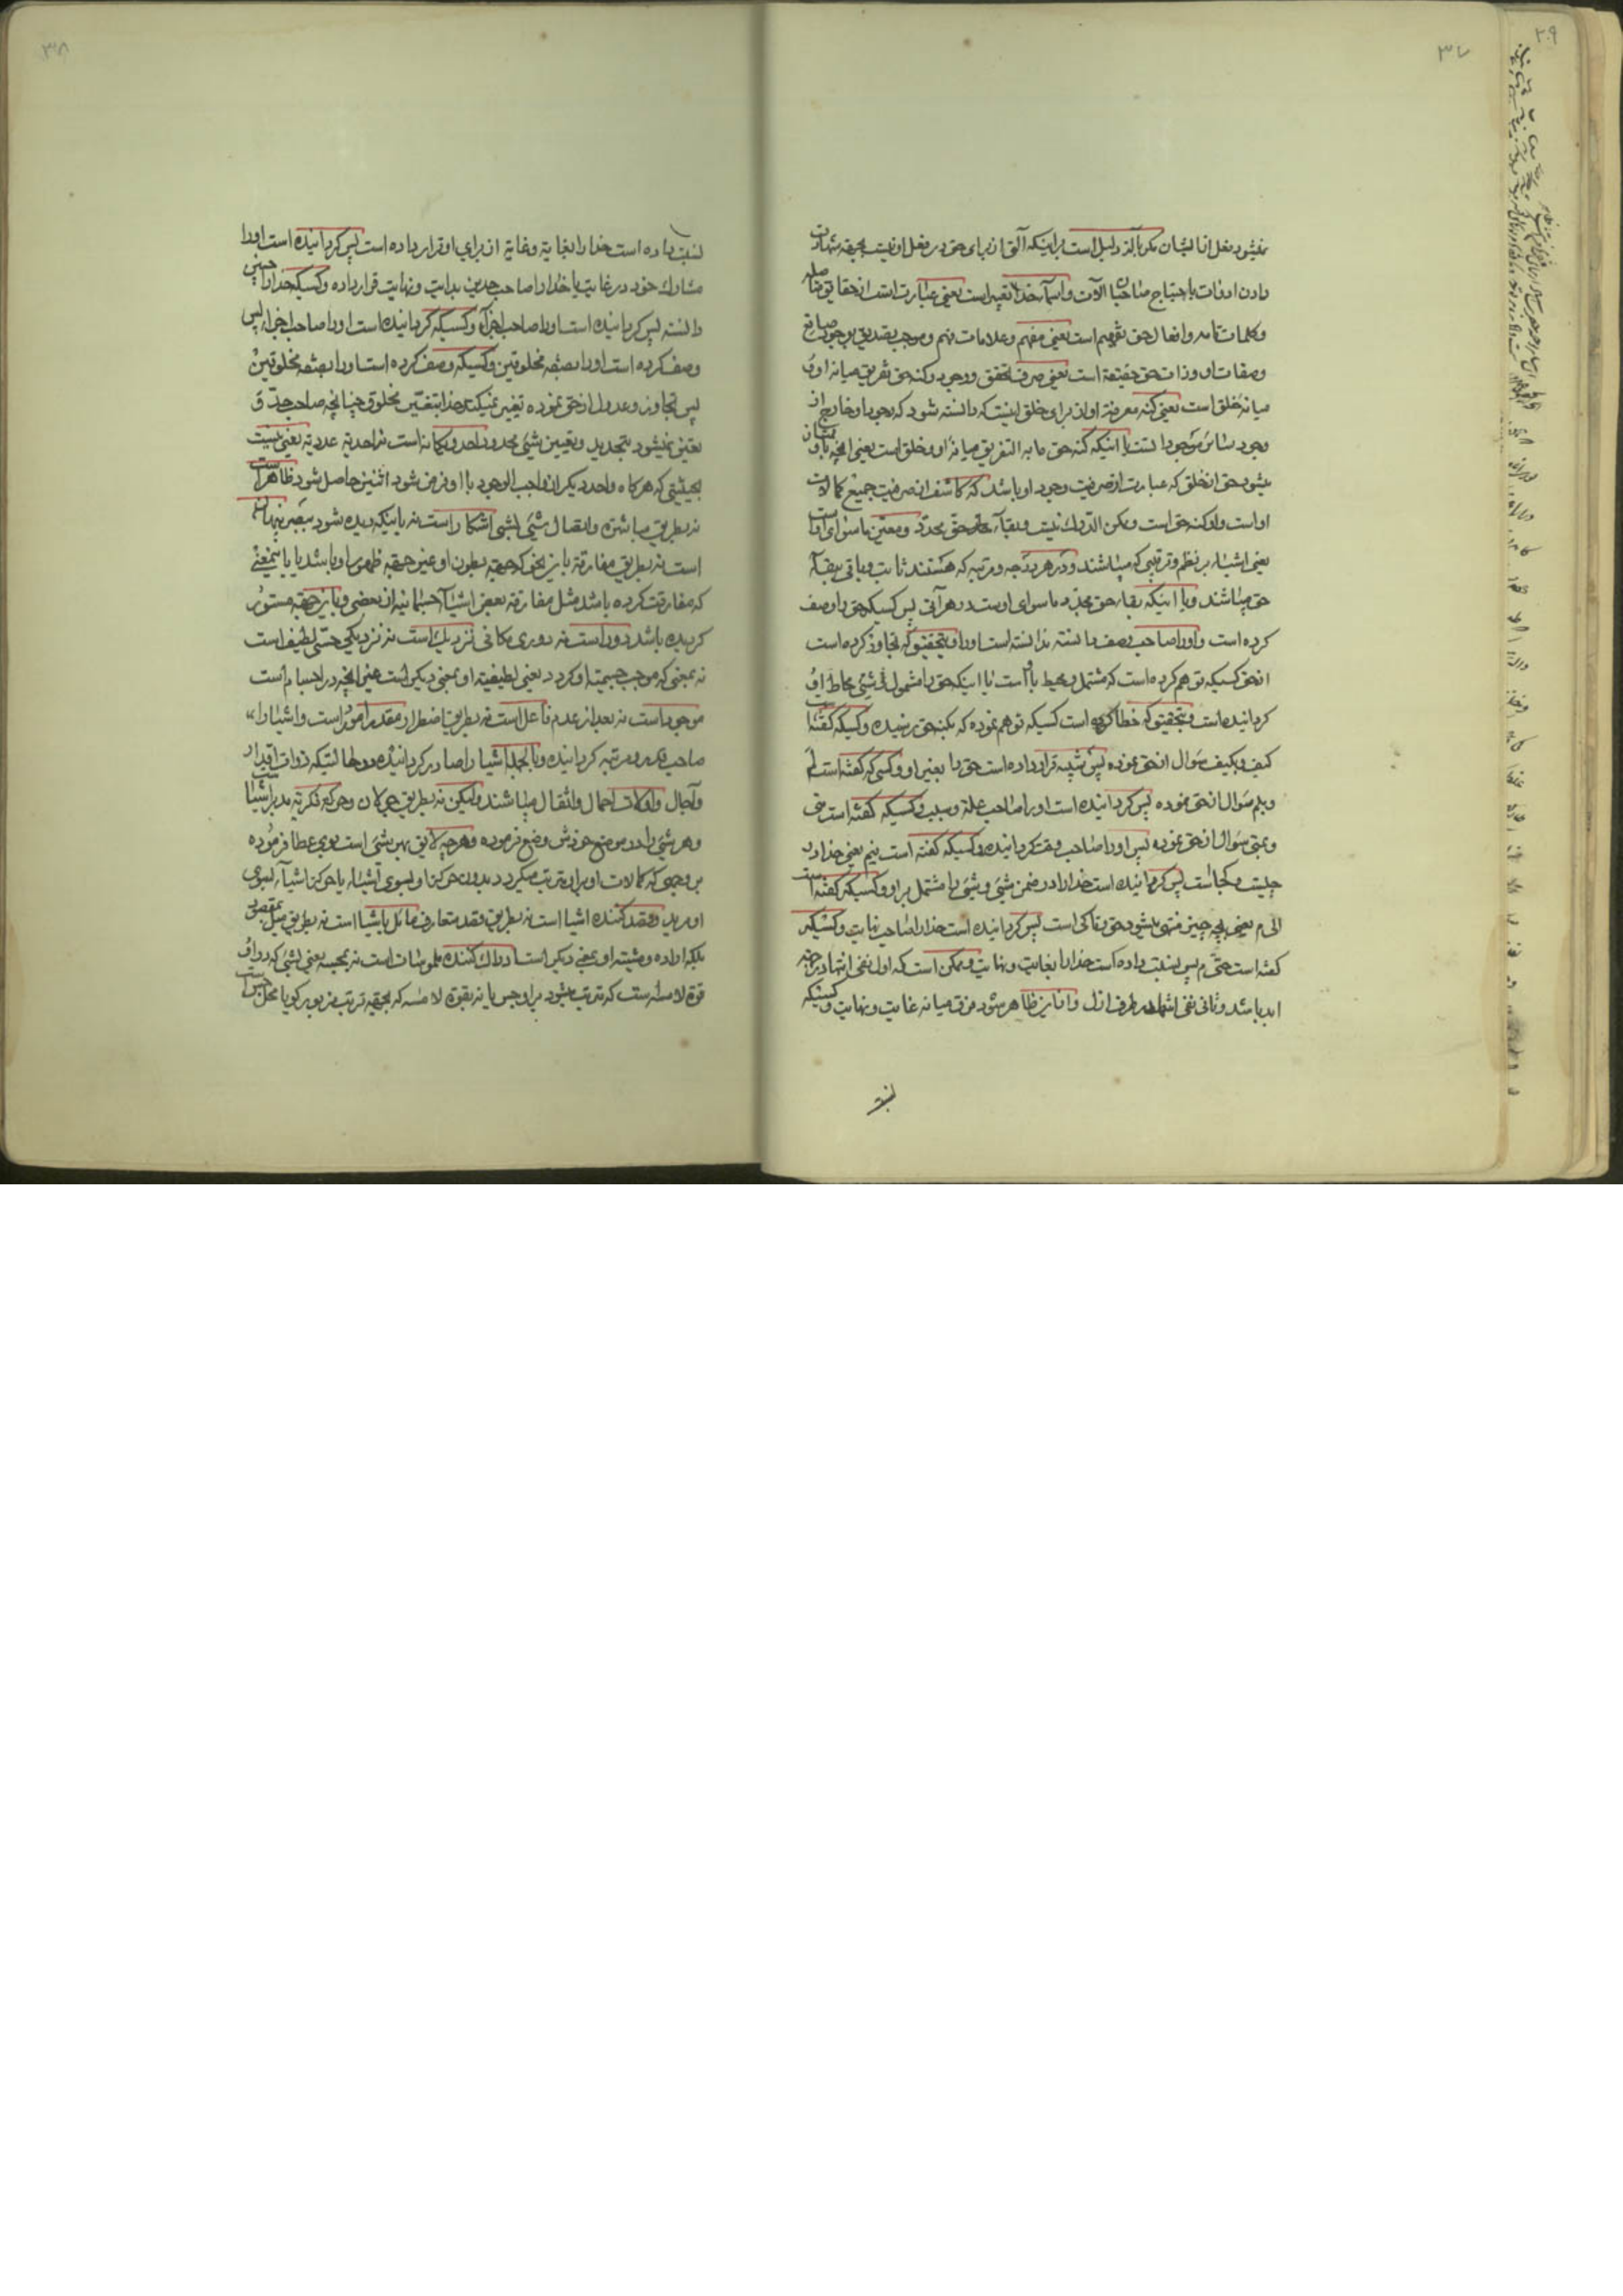 ۳۷
نمیشود فعل از ایشان مگر بآلة دلیل است بر اینکه آلتی از برای حق در فعل او نیست بجهة شهادت
دادن ادوات باحتیاج صاحبان آلات و اسماء خدا تعبیر است یعنی عبارت است از حقایق
وکلمات تامه وافعال حق تفهیم است یعنی مفهم وعلامات فهم وموجب تصدیق بوجود صانع
وصفات او وذات حق حقیقة است یعنی صرف تحقق ووجود وکنه حق تفریق میانه او و
میانه خلق است یعنی کنه معرفة او از برای خلق اینست که دانسته شود که وجود او خارج از
وجود سائر موجودات است یا اینکه کنه حق ما به التفریق میانه او وخلق است یعنی آنچه باو ممتاز
میشود حق از خلق که عبارت از صرفیت وجود او باشد که کاشف از صرفیت جمیع کمالات
او است واو کنه حق است وممکن الدرک نیست وبقاء حق محدد ومعین ماسوای او است
یعنی اشیاء بر نظم وترتیبی که میباشند ودر هر درجه ومرتبه که هستند ثابت وباقی ببقاء
حق میباشند ویا اینکه بقاء حق مجدد ماسوای اوست در هر آنی پس کسیکه حق را وصف
کرده است واورا صاحب وصف دانسته ندانسته است اورا وبتحقیق که تجاوز کرده است
از حق کسیکه توهم کرده است که مشتمل ومحیط باو است یا اینکه حق را مشمول شیئی ومحاط او
گردانیده است وبتحقیق که خطا کرده است کسیکه توهم نموده که بکنه حق رسیده وکسیکه گفته است
کیف وبکیف سؤال از حق نموده پس شبیه قرار داده است حق را بغیر او وکسی که گفته است لم
وبلم سؤال از حق نموده پس گردانیده است اورا صاحب علة وسبب وکسیکه گفته است متی
وبمتی سؤال از حق نموده پس اورا صاحب وقت گردانیده وکسیکه گفته است فیم یعنی خدا در
چیست وکجا است پس گردانیده است خدا را در ضمن شیئی وشیئی را مشتمل بر او وکسیکه گفته است
الی م یعنی بچه چیز منتهی میشود حق وتا کی است پس گردانیده است خدا را صاحب نهایت وکسیکه
گفته است حتی م پس نسبت داده است خدا را بغایت ونهایت وممکن است که اول نفی انتها در جهة
ابد باشد وثانی نفی انتها در طرف ازل واز این ظاهر شود فرق میانه غایت ونهایت وکسیکه
نسبت
۳۸
نسبت داده است خدا را بغایة وغایة از برای او قرار داده است پس گردانیده است اورا
مشارک خود در غایت یا خدا را صاحب حدین بدایت ونهایت قرار داده وکسیکه خدا را چنین
دانسته پس گردانیده است اورا صاحب اجزاء وکسیکه گردانیده است اورا صاحب اجزاء پس
وصف کرده است اورا بصفة مخلوقین وکسیکه وصف کرده است اورا بصفة مخلوقین
پس تجاوز وعدول از حق نموده تغییر نمیکند خدا بتغییر مخلوق چنانچه صاحب حد و
تعین نمیشود بتحدید وتعیین شیئی محدود احد ویگانه است نه احدیة عددیة یعنی نیست
بحیثیتی که هرگاه واحد دیگر از واجب الوجود با او فرض شود اثنین حاصل شود ظاهر است
نه بطریق مباشرة واتصال شیئی بشیئی آشکار است نه باینکه دیده شود ببصر پنهان
است نه بطریق مفارقة باز بنحوی که جهة بطون او عین جهة ظهور او باشد یا باینمعنی
که مفارقت کرده باشد مثل مفارقة بعض اشیاء جسمانیه از بعضی وباین جهة مستور
گردیده باشد دور است نه دوری مکانی نزدیک است نه نزدیکی حسی لطیف است
نه بمعنی که موجب جسمیت او گردد یعنی لطیفیة او بمعنی دیگر است غیر آنچه در اجسام است
موجود است نه بعد از عدم فاعل است نه بطریق اضطرار مقدر امور است واشیاء را
صاحب قدر ومرتبه گردانیده وبالجمله اشیا را صادر گردانیده در حالتیکه ذوات اقدار
وآجال واوقات احمال واثقال میباشند ولیکن نه بطریق جولان وحرکة فکریة مدبر اشیا است
وهر شیئی را در موضع خودش وضع فرموده وهر چه لایق بهر شیئی است بوی عطا فرموده
بر وجهی که کمالات او بر آن مترتب میگردد بدون حرکة او بسوی اشیاء یا حرکة اشیاء بسوی
او مرید وقصد کننده اشیا است نه بطریق قصد متعارف مائل باشیا است نه بطریق میل بمقصود
بلکه اراده ومشیة او بمعنی دیگر است ادراک کننده ملموسات است نه بمجسه یعنی بشیئی که در او
قوة لامسه است که مترتب میشود بر او جس یا نه بقوة لامسه که بجهة ترتب مزبور گویا محل جس است